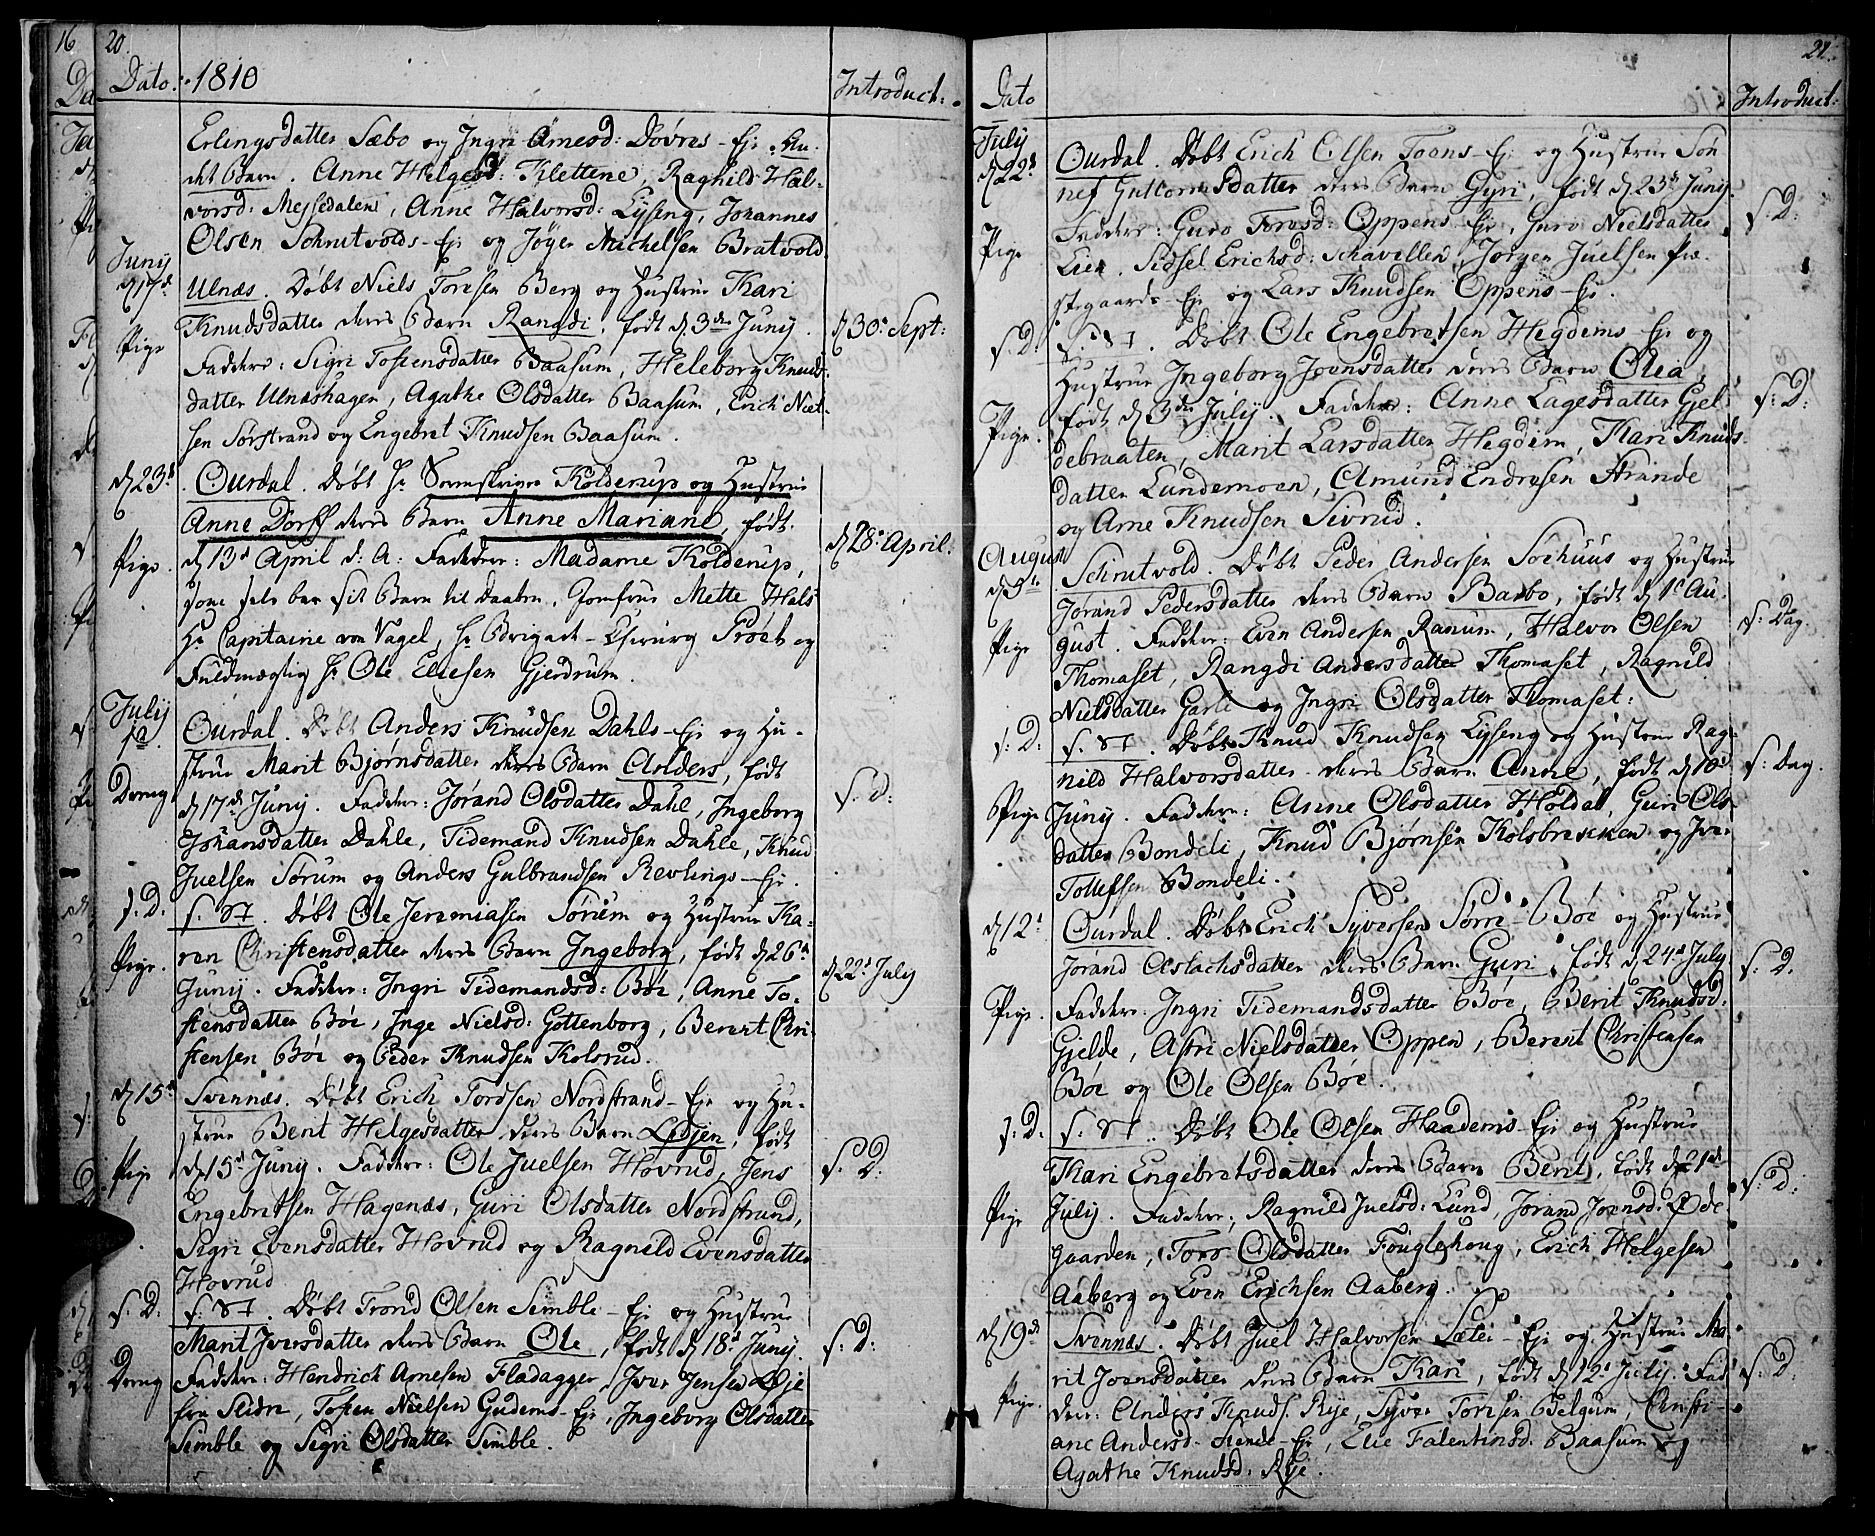 16
20.
Dato. 1810
Introduct:
Erlingsdatter Sæbo og Ingri Arnesd: Dovres-Eje. An-
det Barn. Anne Helgesd: Klettene, Ragnild Hal-
vorsd: Messedalen, Anne Halvorsd: Lyseng, Johannes
Olsen Schrutvolds-Eje og Jøger Michelsen Bratvold.
Juny
d. 17de
Ulnæs. Døbt Niels Toresen Berg og Hustrue Kari
Pige
Knudsdatter deres Barn Rangdi, født d. 3de Juny.
d. 30: Sept:
Faddere: Sigri Tostensdatter Baasum, Heleborg Knuds-
datter Ulnæshagen, Agathe Olsdatter Baasum, Erich Niel-
sen Sørstrand og Engebret Knudsen Baasum.
d. 23d
Ourdal. Døbt Hr Sorenskriver Kolderup og Hustrue
Anne Dorff deres Barn Anne Mariane, født
Pige.
d. 13d April d: A: Faddere: Madame Kolderup,
d. 28: April.
som selv bar sit Barn til Daaben, Jomfrue Mette Hals
Hr Capitaine von Vagel, Hr Brigade-Chirurg Proet og
Fuldmægtig Hr Ole Eliesen Gjerdrum.
July
1a
Ourdal. Døbt Anders Knudsen Dahls-Eje og Hu-
strue Marit Bjørnsdatter deres Barn Anders, født
Dreng
d. 17de Juny. Faddere: Jørand Olsdatter Dahle, Ingeborg
s. D:
Johansdatter Dahle, Tidemand Knudsen Dahle, Knud
Juelsen Sørum og Anders Gulbrandsen Revlings-Eje.
s. D.
s. St. Døbt Ole Jeremiasen Sørum og Hustrue Ka-
ren Christensdatter deres Barn Ingeborg, født d. 26de
Pige.
d. 22d July
Juny. Faddere: Ingri Tidemandsd: Böe, Anne To-
stensdatter Böe, Inge Nielsd: Gottenborg, Berent Chri-
stensen Böe og Peder Knudsen Kolsrud.
d. 15de
Svennæs. Døbt Erich Tordsen Nordstrand-Eje og Hu-
strue Berit Helgesdatter deres Barn Ledjen, født
Pige
d. 15d Juny. Faddere: Ole Juelsen Hovrud, Jens
s. D:
Engebretsen Hagenæs, Guri Olsdatter Nordstrand,
Sigri Evensdatter Hovrud og Ragnild Evensdatter
Hovrud
s. D.
s. St. Døbt Trond Olsen Semble-Eje og Hustrue
Marit Iversdatter deres Barn Ole, født d. 18d Juny.
s. D:
Dreng
Faddere: Hendrich Arnesen Fladagger, Iver Jensen Øje
fra Slidre, Tosten Nielsen Gudems-Eje, Ingeborg Olsdatter
Semble og Sigri Olsdatter Semble.
21.
Dato
Introduct:
July
d. 22d
Ourdal. Døbt Erich Olsen Toens-Eje og Hustrue Søn
nef Guttormsdatter deres Barn Gyri, født d. 23d Juny.
s. D:
Pige
Faddere: Guro Toresd: Oppens-Eje, Guro Nielsdatter
Lien. Sidsel Erichsd: Schavellen, Jørgen Juelsen Præ-
stegaards-Eje og Lars Knudsen Oppens-Eje.
s. D:
s. St. Døbt Ole Engebretsen Hegdems-Eje og
Hustrue Ingeborg Joensdatter deres Barn Olea,
s. D:
Pige.
født d. 3de July. Faddere: Anne Lagesdatter Gjel-
debraaten, Marit Larsdatter Hegdem, Kari Knuds-
datter Lundemoen, Amund Endresen Strande
og Arne Knudsen Sivrud.
August
d. 5te
Schrutvold. Døbt Peder Andersen Soehuus og Hustrue
Jørand Pedersdatter deres Barn Barbo, født d. 1d Au-
s. Dag.
Pige
gust. Faddere: Even Andersen Ranum, Halvor Olsen
Thomaset, Rangdi Andersdatter Thomaset, Ragnild
Nielsdatter Garli og Ingri Olsdatter Thomaset:
s. D:
s. St. Døbt Knud Knudsen Lyseng og Hustrue Rag-
nild Halvorsdatter deres Barn Anne, født d. 10d
s. Dag.
Pige
Juny. Faddere: Anne Olsdatter Holdal, Guri Ols-
datter Bondeli, Knud Bjørnsen Kolsbrekken og Iver
Tollefsen Bondeli.
d. 12d
Ourdal. Døbt Erich Syversen Sørre-Böe og Hustrue
Jørand Aslachsdatter deres Barn Guri, født d. 24d July
s. D.
Pige.
Faddere. Ingri Tidemandsdatter Böe, Berit Knudsd:
Gjelde, Astri Nielsdatter Oppen, Berent Christensen
Böe og Ole Olsen Böe.
s. D.
s. St. Døbt Ole Olsen Haadems-Eje og Hustrue
Kari Engebretsdatter deres Barn Berit, født d. 21d
s. D:
Pige
July. Faddere; Ragnild Juelsd: Lund, Jørand Joensd: Øde-
gaarden, Toro Olsdatter Fouglehoug, Erich Helgesen
Aaberg og Even Erichsen Aaberg.
d. 19de
Svennæs. Døbt Juel Halvorsen Sælei-Eje og Hustrue Ma-
rit Joensdatter deres Barn Kari, født d. 12d July. Fad
s. D.
Pige.
dere: Anders Knuds. Rye, Syver Toresen Belgum, Christi-
ane Andersd. Stende-Eje, Elie Falentinsd. Baasum og
Agathe Knudsd. Rye.